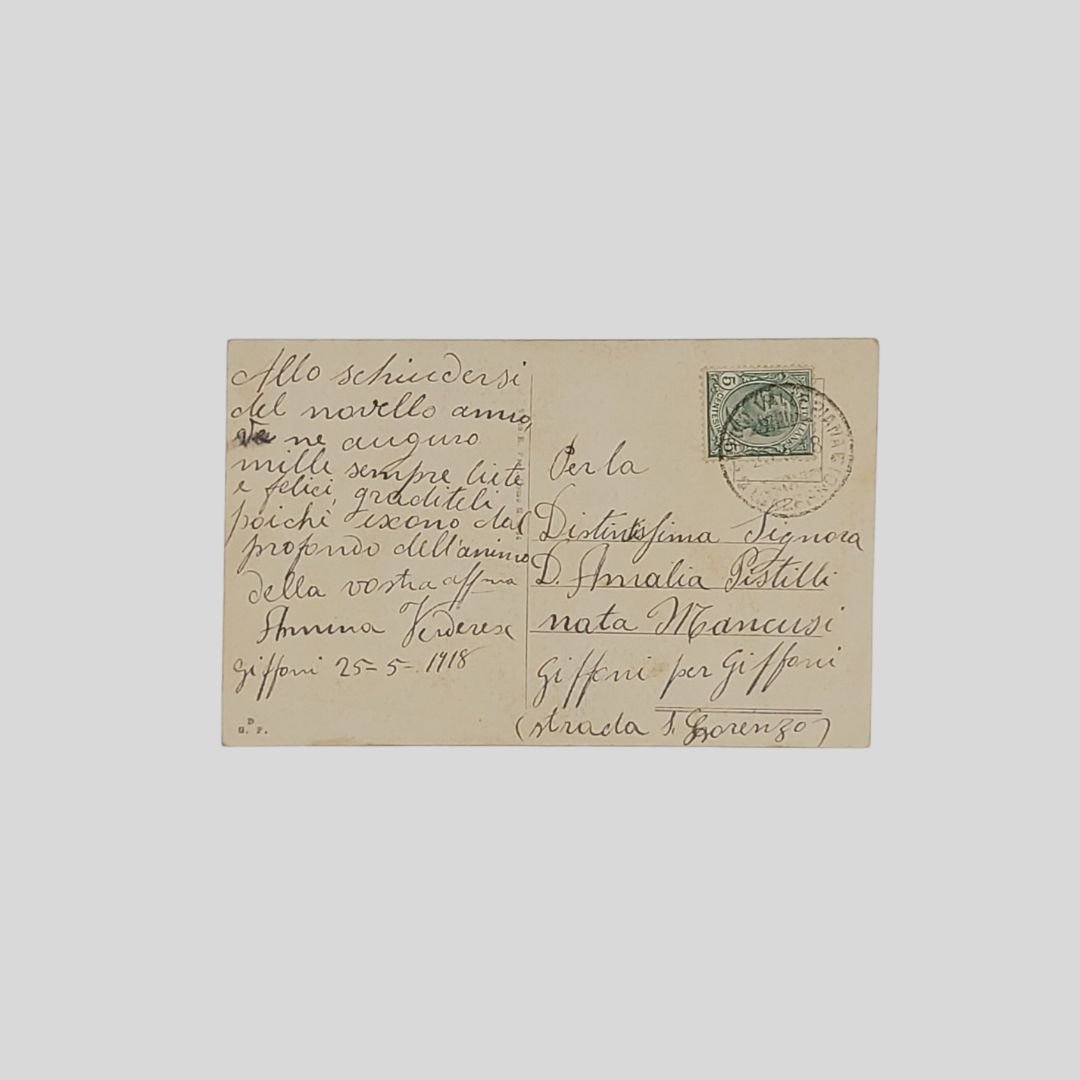 Allo schiudersi
del novello anno,
ve ne auguro
mille sempre liete
e felici, graditeli
poichè escono dal
profondo dell'animo
della vostra affma
Annina Verderese
Giffoni 25-5-1918
D
G. P.
5
CENTESIMI
5
Per la
Distintissima Signora
D. Amalia Pistilli
nata Mancusi
Giffoni per Giffoni
(strada S. Lorenzo)